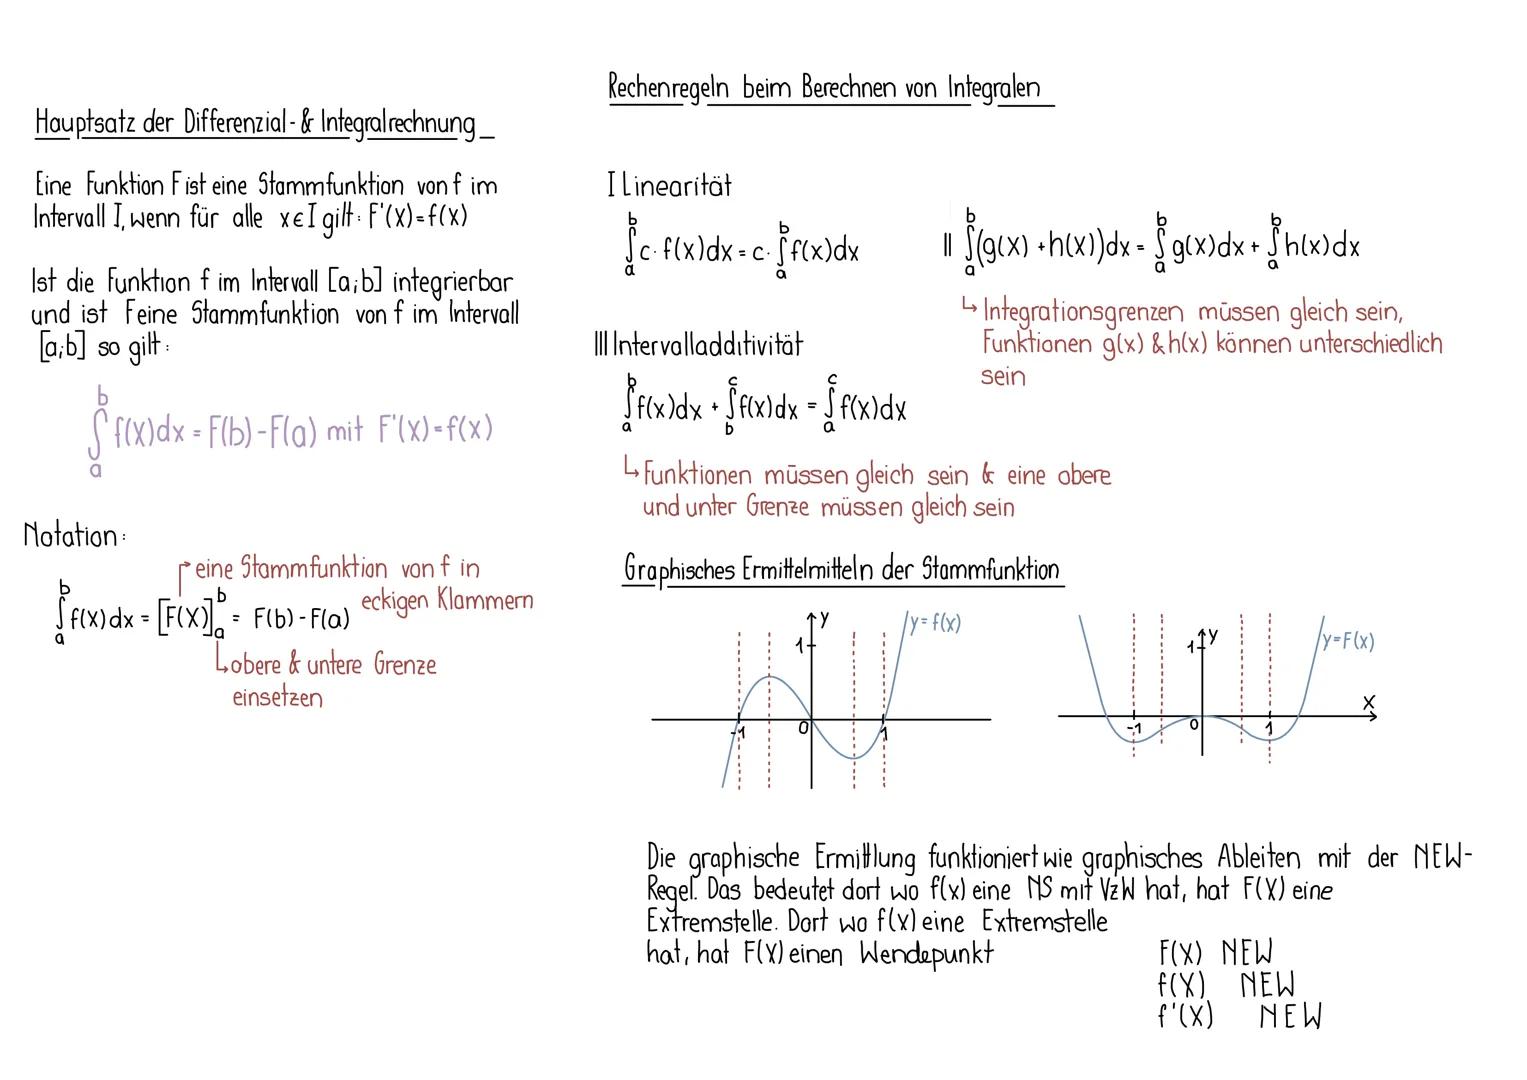 Hauptsatz der Differenzial- & Integralrechnung
Eine Funktion F ist eine Stammfunktion von f im
Intervall I, wenn für alle x∈I gilt: F'(x)=f(x)
Ist die Funktion f im Intervall [a;b] integrierbar
und ist F eine Stammfunktion von f im Intervall
[a;b] so gilt:
∫_a^b f(x)dx = F(b)-F(a) mit F'(x)=f(x)
Notation:
eine Stammfunktion von f in
eckigen Klammern
∫_a^b f(x)dx = [F(x)]_a^b = F(b)-F(a)
obere & untere Grenze
einsetzen
Rechenregeln beim Berechnen von Integralen
I Linearität
∫_a^b c·f(x)dx = c·∫_a^b f(x)dx
II ∫_a^b (g(x)+h(x))dx = ∫_a^b g(x)dx + ∫_a^b h(x)dx
↳ Integrationsgrenzen müssen gleich sein,
Funktionen g(x) & h(x) können unterschiedlich
sein
III Intervalladditivität
∫_a^b f(x)dx + ∫_b^c f(x)dx = ∫_a^c f(x)dx
↳ Funktionen müssen gleich sein & eine obere
und unter Grenze müssen gleich sein
Graphisches Ermittelmitteln der Stammfunktion
y
1
y=f(x)
-1
0
1
y
1
y=F(x)
x
-1
0
1
Die graphische Ermittlung funktioniert wie graphisches Ableiten mit der NEW-
Regel. Das bedeutet dort wo f(x) eine NS mit VzW hat, hat F(x) eine
Extremstelle. Dort wo f(x) eine Extremstelle
hat, hat F(x) einen Wendepunkt
F(x) NEW
f(x) NEW
f'(x) NEW